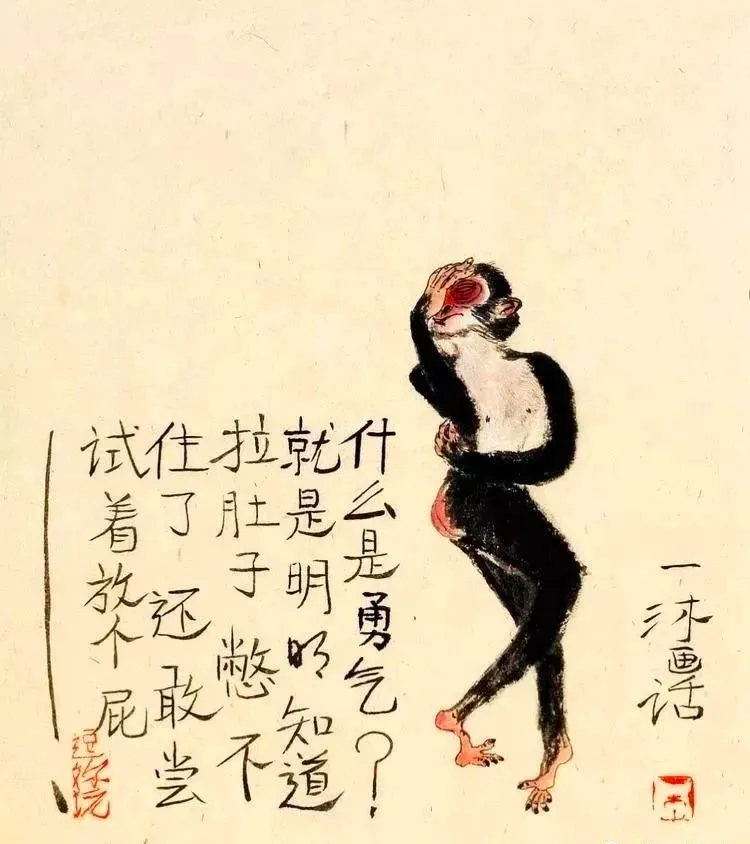 一沐画话
什么是勇气？
就是明明知道
拉肚子憋不
住了还敢尝
试着放个屁